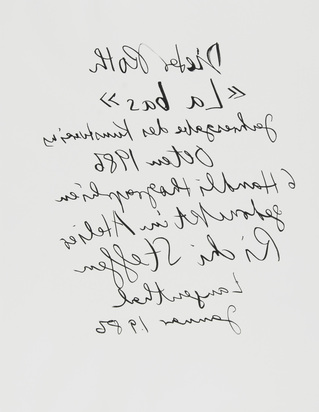 Dieter Roth
«La bas»
Jahresgabe des Kunstvereins
Olten 1986
6 Handlithographien
gedruckt im Atelier
Richi Steffen
Langenthal
Januar 1986